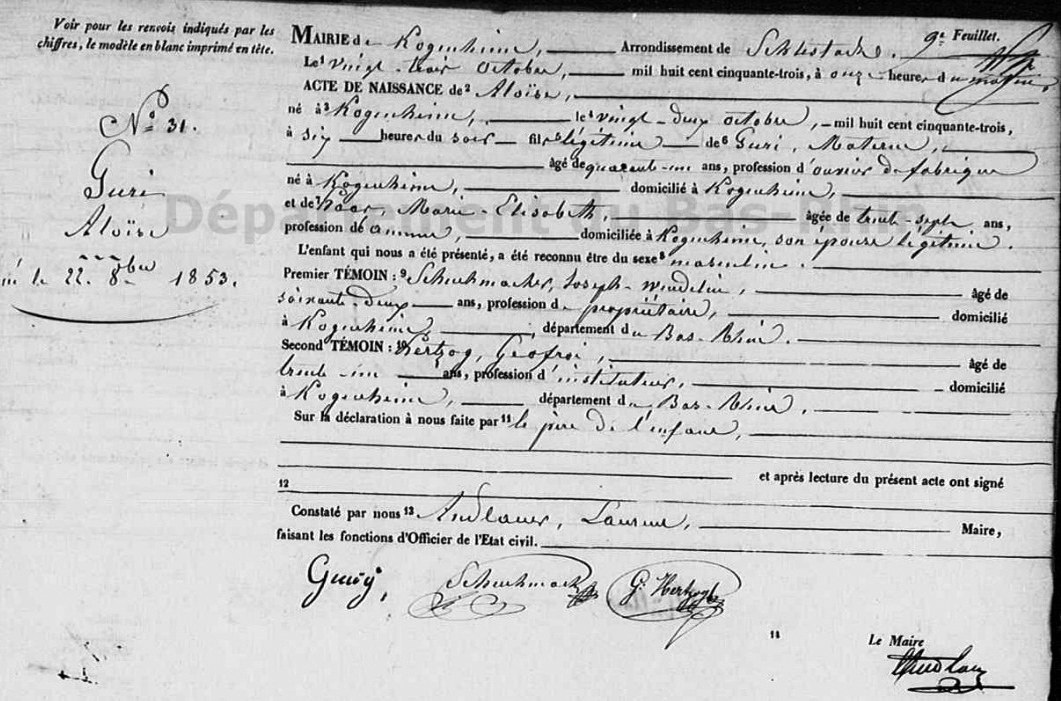 Voir pour les renvois indiqués par les
chiffres, le modèle en blanc imprimé en tête.
9e Feuillet.
MAIRIE de Kogenheim, Arrondissement de Schlestadt.
Le 1 vingt-trois octobre, mil huit cent cinquante-trois, à onze heures du matin,
ACTE DE NAISSANCE de 2 Aloïse,
né à 3 Kogenheim, le 4 vingt-deux octobre, mil huit cent cinquante-trois,
à six heures du soir fils 5 légitime de 6 Guri, Materne,
âgé de quarante-un ans, profession d'ouvrier de fabrique
né à Kogenheim, domicilié à Kogenheim,
et de 7 Haas, Marie-Elisabeth, âgée de trente-sept ans,
profession de domiciliée à Kogenheim, son épouse légitime.
L'enfant qui nous a été présenté, a été reconnu être du sexe 8 masculin.
Premier TÉMOIN : 9 Schuhmacher, Joseph-Wendelin, âgé de
soixante-deux ans, profession de propriétaire, domicilié
à Kogenheim, département du Bas-Rhin.
Second TÉMOIN : 10 Hertzog, Géofroi, âgé de
trente-un ans, profession d'instituteur, domicilié
à Kogenheim, département du Bas-Rhin.
Sur la déclaration à nous faite par 11 le père de l'enfant,
et après lecture du présent acte ont signé
12
Constaté par nous 13 Andlauer, Laurent, Maire,
faisant les fonctions d'Officier de l'Etat civil.
Schuhmacher
G. Hertzog
14
Le Maire
Andlauer
No 31.
Guri
Aloïse
né le 22. 8bre 1853.
Département du Bas-Rhin